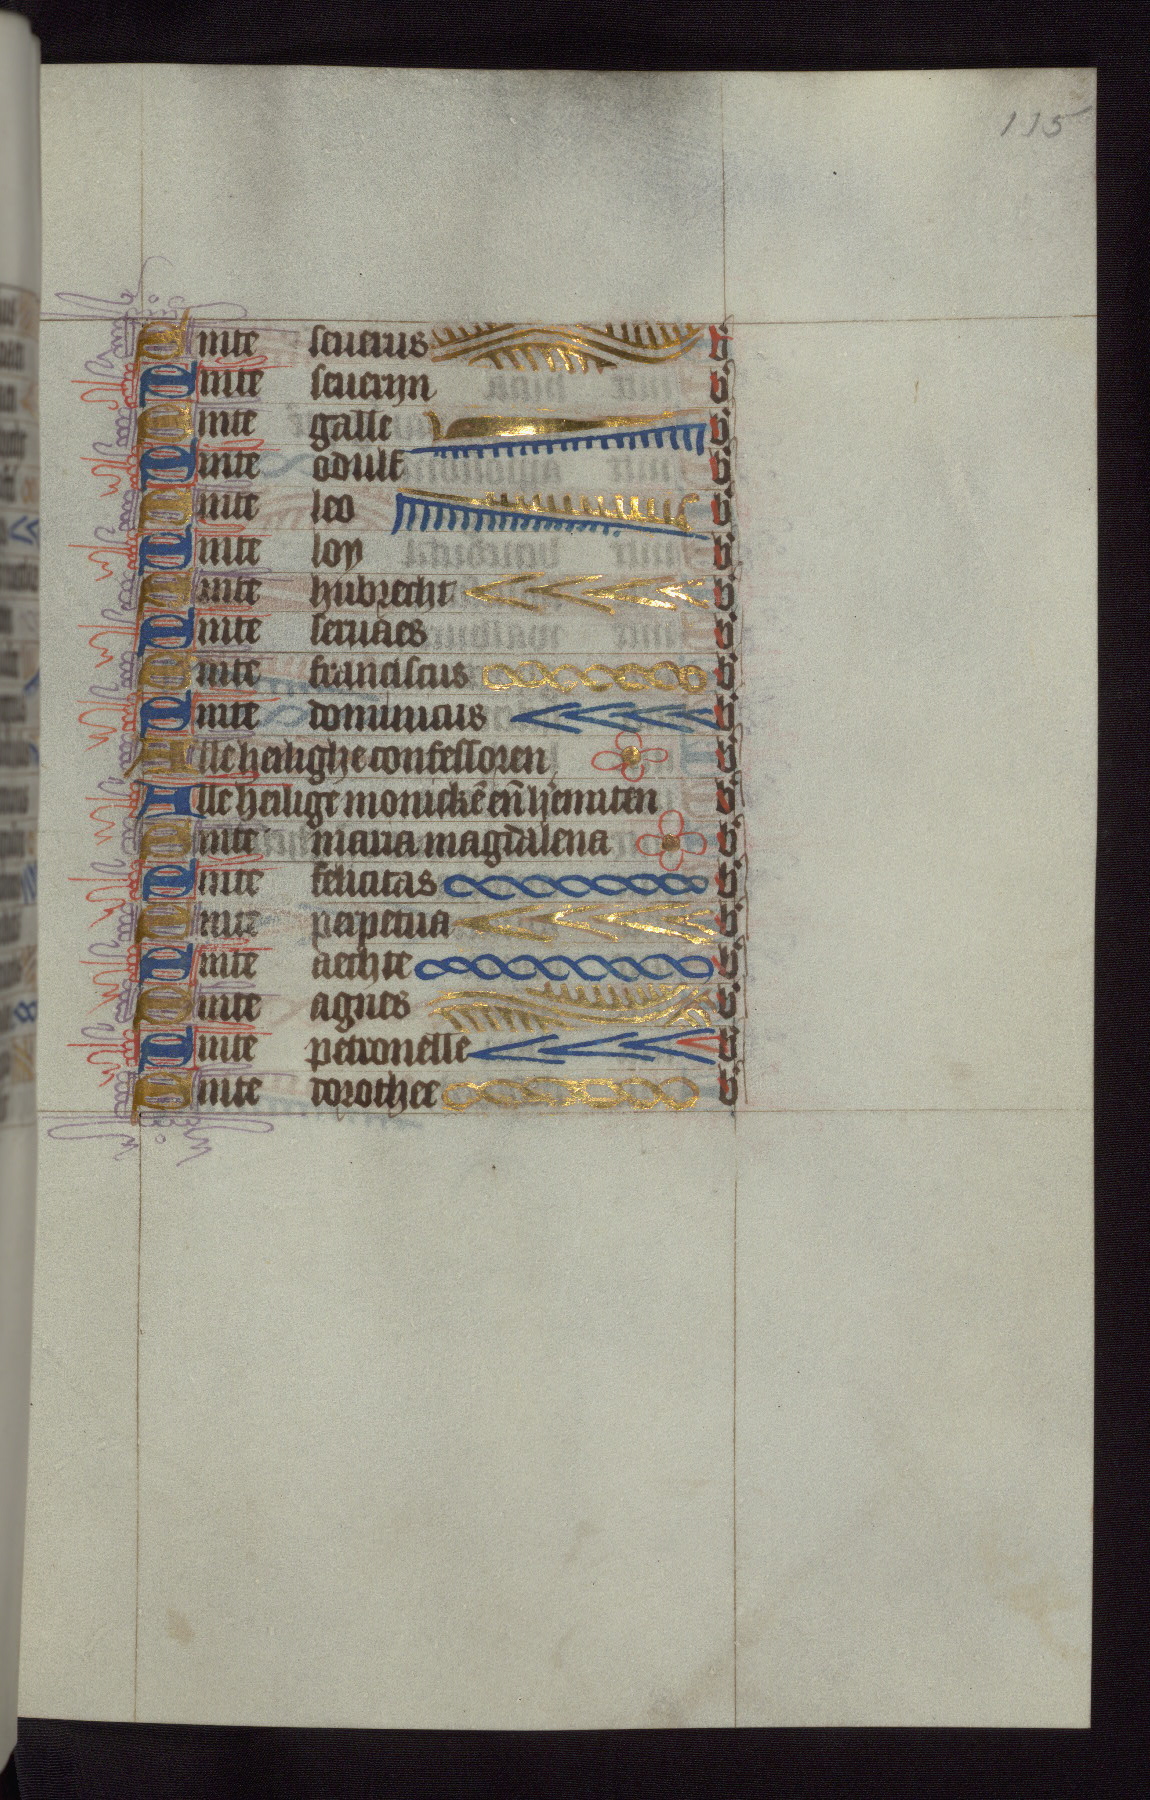 115
Sinte seuerus b
Sinte seueryn b
Sinte galle b
Sinte odulf b
Sinte leo b
Sinte loy b
Sinte hubrecht b
Sinte seruaes b
Sinte franciscus b
Sinte dominicus b
Alle heilighe confessoren b
Alle heilige monickē eñ h'emiten b
Sinte maria magdalena b
Sinte felicitas b
Sinte perpetua b
Sinte aechte b
Sinte agnes b
Sinte petronelle b
Sinte dorothee b